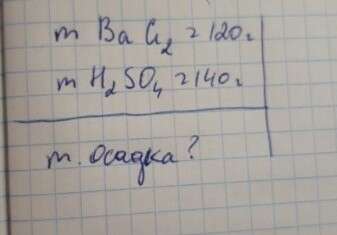 m BaCl₂ = 120г
m H₂SO₄ = 140г
m. Осадка?